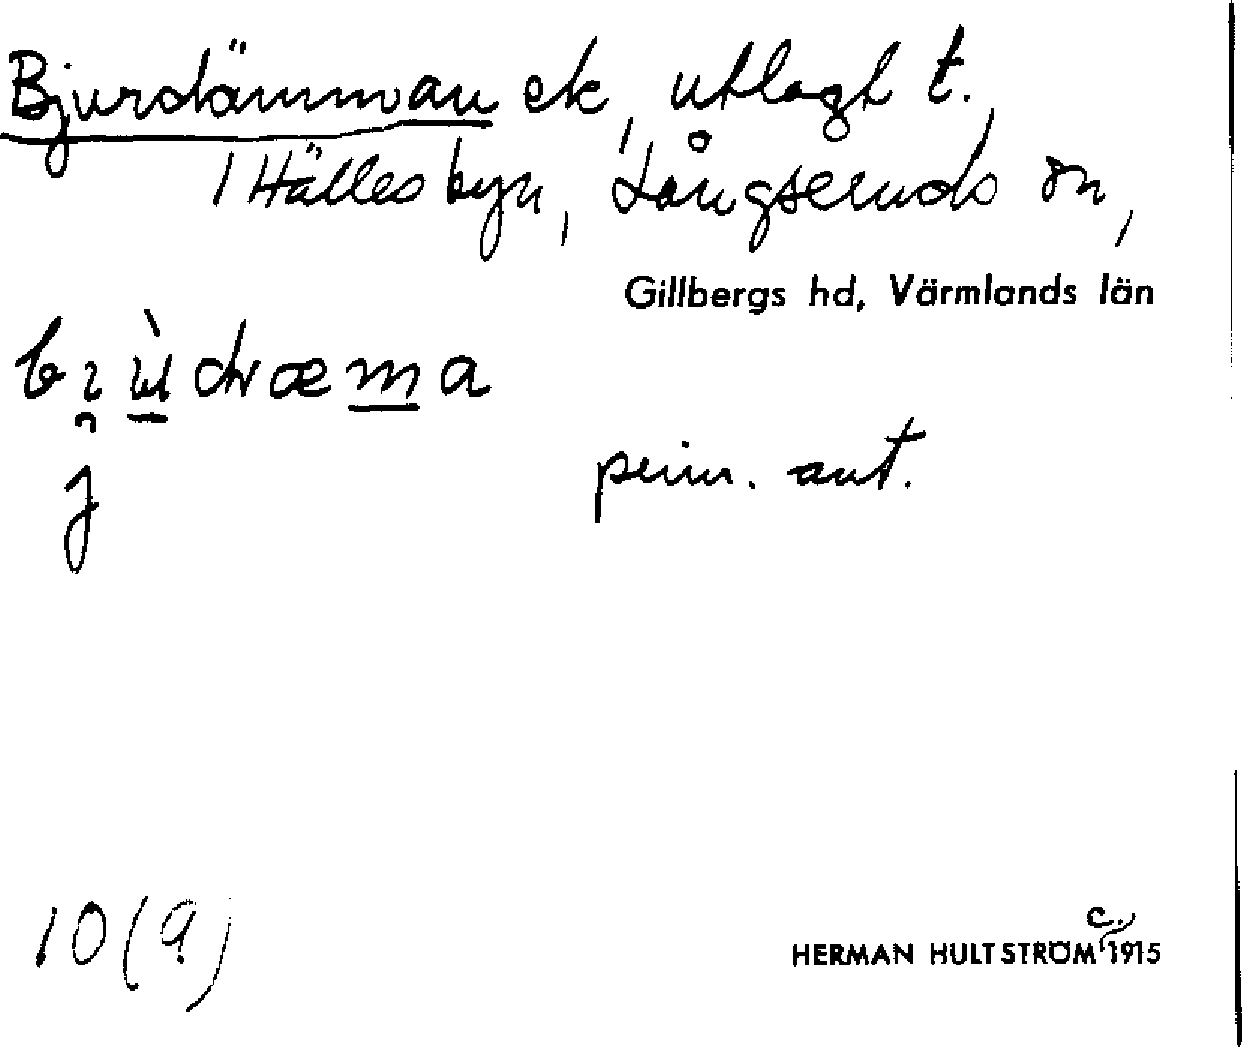 Bjurdämman ek, utlagt t.
Hällesbyn, Långseruds sn,
Gillbergs hd, Värmlands län
j
10(9)
c.
HERMAN HULTSTRÖM 1915